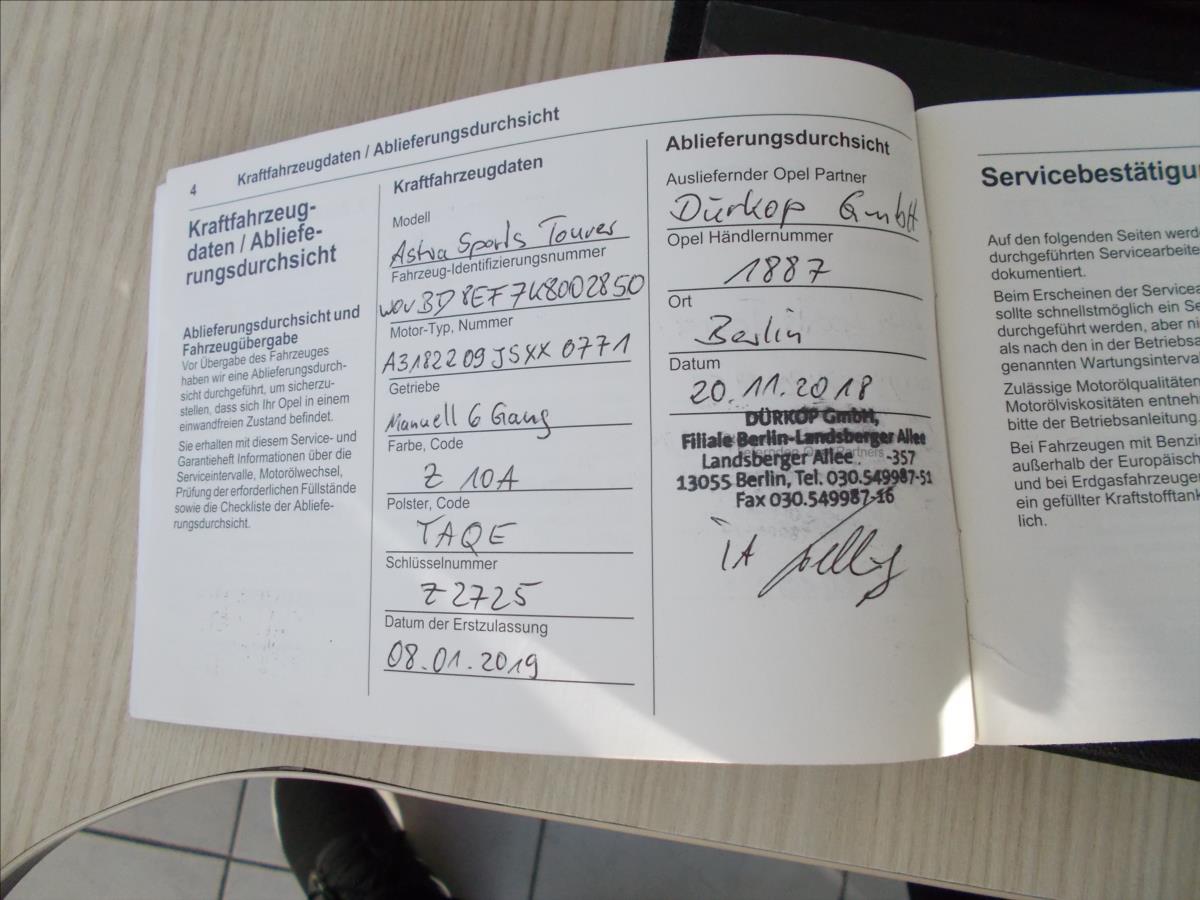 4 Kraftfahrzeugdaten / Ablieferungsdurchsicht
Kraftfahrzeug-
daten / Abliefe-
rungsdurchsicht
Ablieferungsdurchsicht und
Fahrzeugübergabe
Vor Übergabe des Fahrzeuges
haben wir eine Ablieferungsdurch-
sicht durchgeführt, um sicherzu-
stellen, dass sich Ihr Opel in einem
einwandfreien Zustand befindet.
Sie erhalten mit diesem Service- und
Garantieheft Informationen über die
Serviceintervalle, Motorölwechsel,
Prüfung der erforderlichen Füllstände
sowie die Checkliste der Abliefe-
rungsdurchsicht.
Kraftfahrzeugdaten
Modell
Astra Sports Tourer
Fahrzeug-Identifizierungsnummer
W0VBD8EF7K8002850
Motor-Typ, Nummer
A3182209JSXX0771
Getriebe
Manuell 6 Gang
Farbe, Code
Z 10A
Polster, Code
TAQE
Schlüsselnummer
Z2725
Datum der Erstzulassung
08.01.2019
Ablieferungsdurchsicht
Ausliefernder Opel Partner
Dürkop GmbH
Opel Händlernummer
1887
Ort
Berlin
Datum
20.11.2018
DÜRKOP GmbH,
Filiale Berlin-Landsberger Allee
Landsberger Allee -357
13055 Berlin, Tel. 030.549987-51
Fax 030.549987-16
iA
Servicebestätigu
Auf den folgenden Seiten werd
durchgeführten Servicearbeite
dokumentiert.
Beim Erscheinen der Servicea
sollte schnellstmöglich ein Se
durchgeführt werden, aber ni
als nach den in der Betriebsa
genannten Wartungsinterval
Zulässige Motorölqualitäten
Motorölviskositäten entnehm
bitte der Betriebsanleitung.
Bei Fahrzeugen mit Benzin
außerhalb der Europäisch
und bei Erdgasfahrzeugen
ein gefüllter Kraftstofftank
lich.